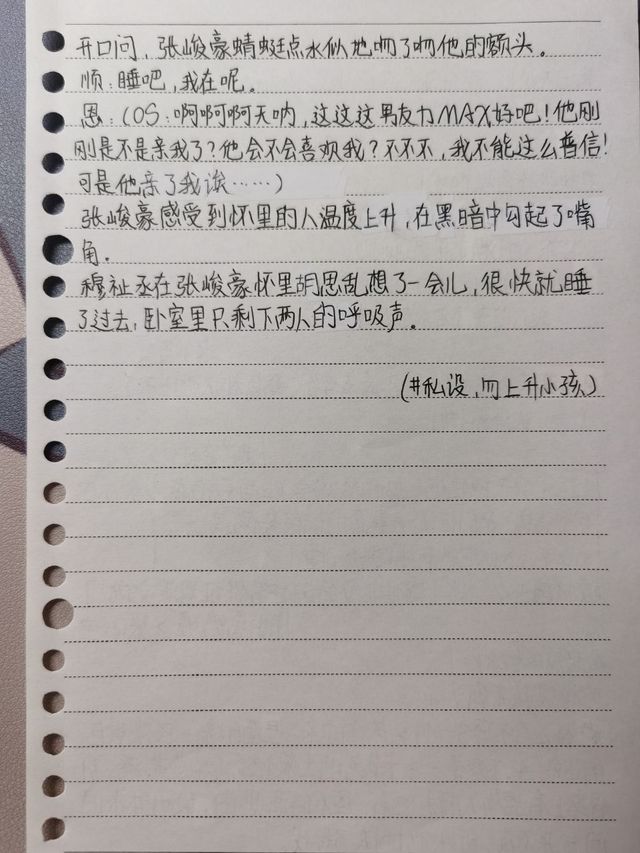 开口问，张峻豪蜻蜓点水似地吻了吻他的额头。
顺：睡吧，我在呢。
恩：(OS：啊啊啊天呐，这这这男友力MAX好吧！他刚
刚是不是亲我了？他会不会喜欢我？不不不，我不能这么普信！
可是他亲了我诶……)
张峻豪感受到怀里的人温度上升，在黑暗中勾起了嘴
角。
穆祉丞在张峻豪怀里胡思乱想了一会儿，很快就睡
了过去，卧室里只剩下两人的呼吸声。
(#私设，勿上升小孩)